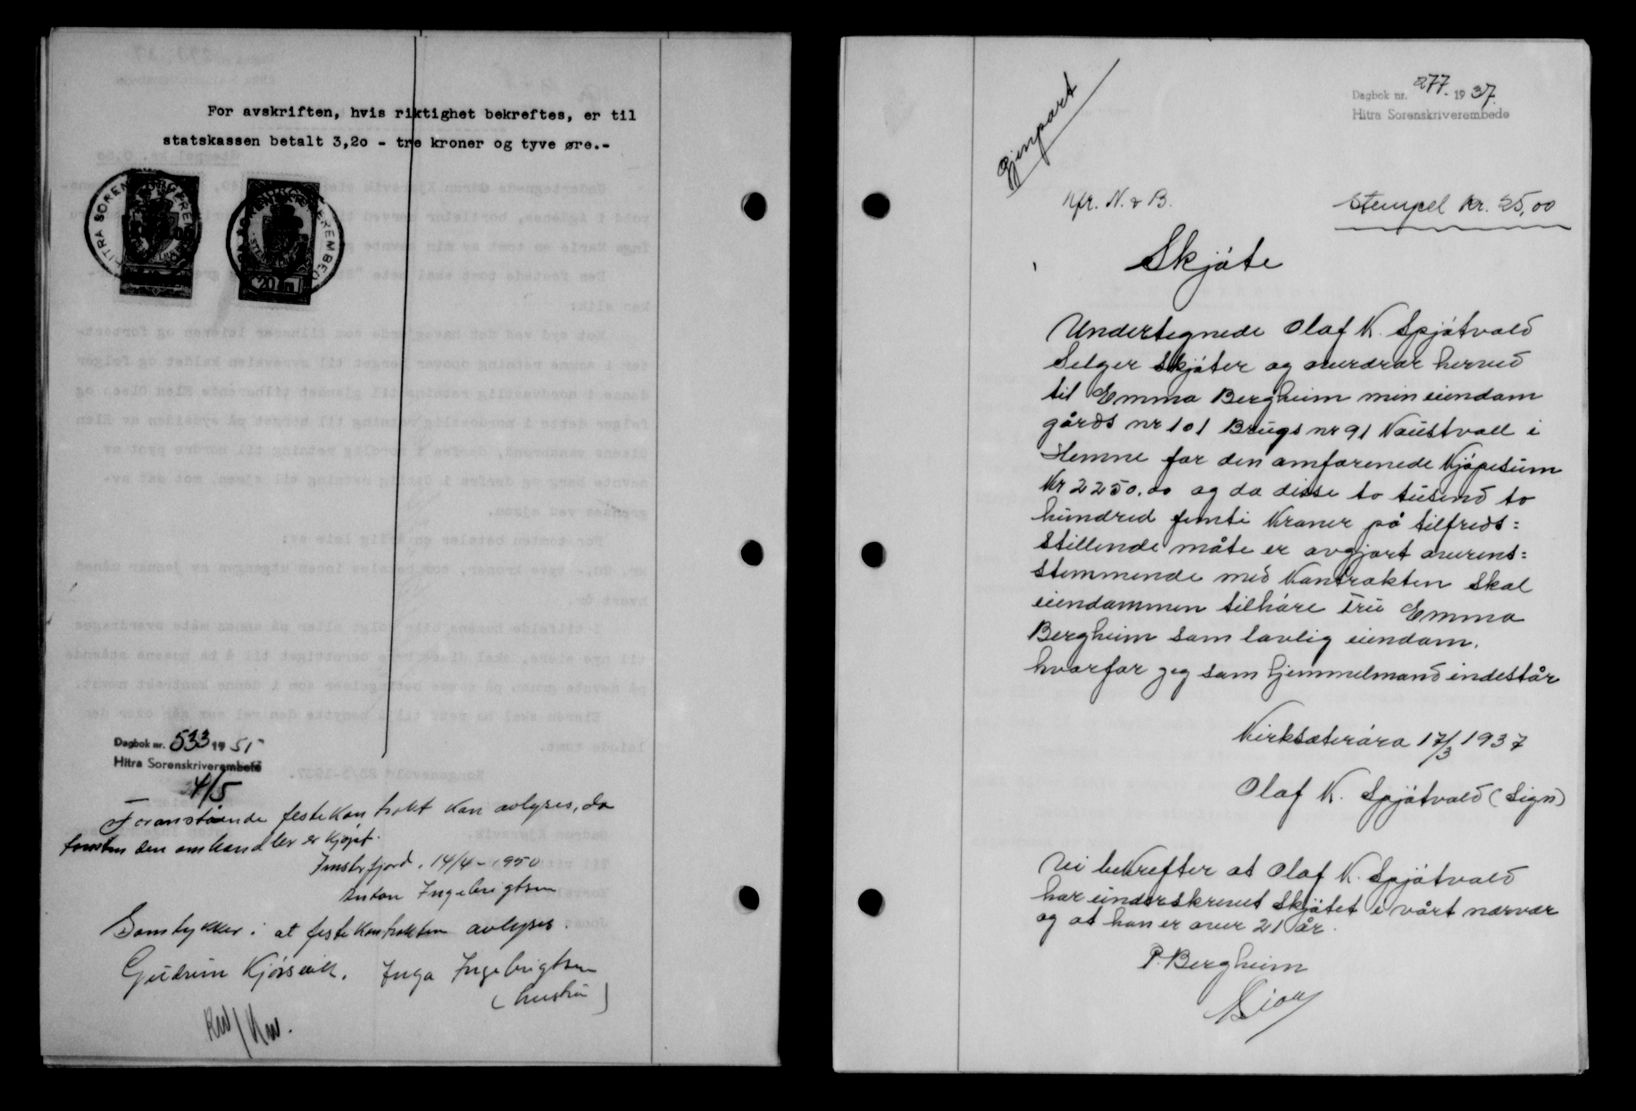 For avskriften, hvis riktighet bekreftes, er til
statskassen betalt 3,20 - tre kroner og tyve øre.-
HITRA SORENSKRIVEREMBEDE
20
Dagbok nr. 533 19 51
Hitra Sorenskriverembete
4/5
Foranstående festekontrakt kan avlyses, da
tomten den omhandler er kjøpt.
Imsterfjord. 14/4-1950
Anton Ingebrigtsen
Samtykker i at festekontrakten avlyses.
Gudrun Kjørsvik. Inga Ingebrigtsen
(hustru)
Gjenpart
Dagbok nr. 277. 19 37.
Hitra Sorenskriverembede
Kfr. N. & B.
Stempel kr. 25,00
Skjøte
Undertegnede Olaf K. Spjøtvold
selger skjøter og overdrar herved
til Emma Bergheim min eiendom
gårds nr 101 Brugs nr 91 Naustvoll i
Hemne for den omforenede Kjøpesum
Kr 2250.00 og da disse to tusend to
hundred femti Kroner på tilfreds=
stillende måte er avgjort overens=
stemmende med Kontrakten skal
eiendommen tilhøre Fru Emma
Bergheim som lovlig eiendom.
hvorfor jeg som hjemmelmand indestår
Kirksæterøra 17/3 1937
Olaf K. Spjøtvold (Sign)
Vi bekrefter at Olaf K. Spjøtvold
har underskrevet skjøtet i vårt nærvær
og at han er over 21 år.
P. Bergheim